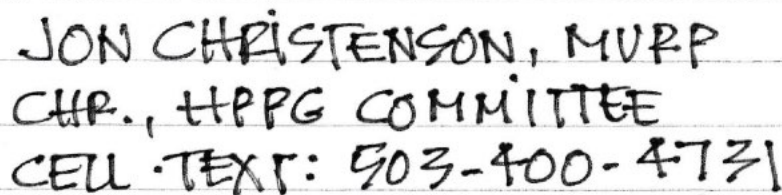 JON CHRiSTENSON, MURP
CHR., HPPG COMMiTTEE
CELL ·TEXT: 503-400-4731